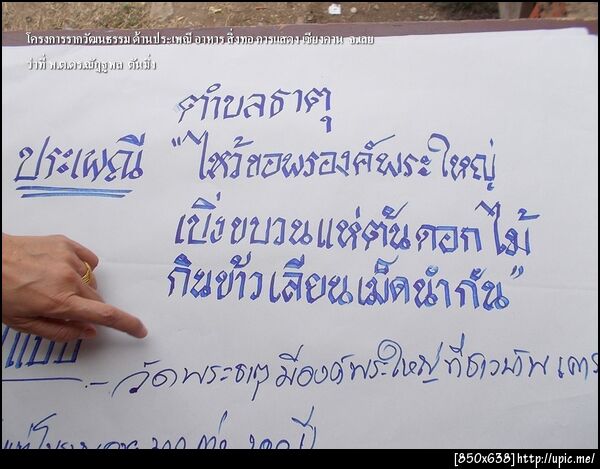 โครงการรากวัฒนธรรม ด้านประเพณี อาหาร สิ่งทอ การแสดง เชียงคาน จ.เลย
ว่าที่
ตำบลธาตุ
ประเพณี "ไหว้ขอพรองค์พระใหญ่
เบิ่งขบวนแห่ต้นดอกไม้
กินข้าวเลียนเม็ดนำกัน"
วัดพระธาตุ มีองค์พระใหญ่ ที่ชาว
[850x638] http://upic.me/